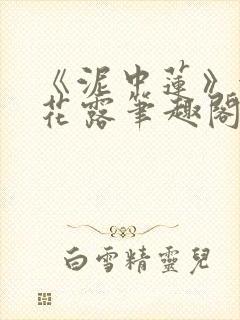 《泥中蓮》
花露筆趣閣
白雪精靈兒